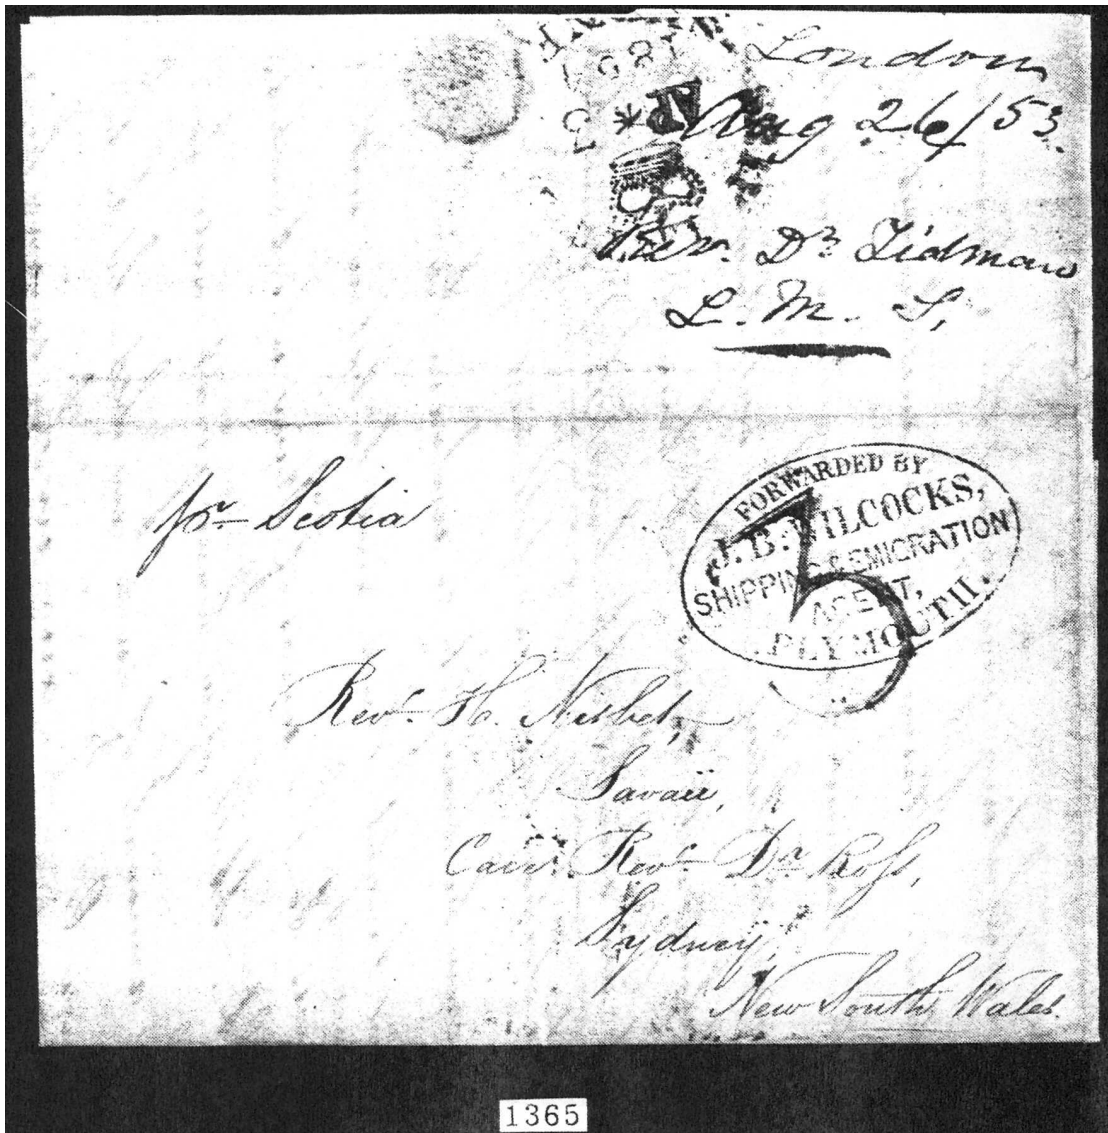 London
Aug 26/53.
Revr. Dr. Tidman
L. M. S,
pr Scotia
FORWARDED BY
J. B. WILCOCKS,
SHIPPING & EMIGRATION
AGENT,
PLYMOUTH.
3
Revd. H. Nisbet,
Savaii,
Care Revd. Dr. Ross,
Sydney,
New South Wales.
1365